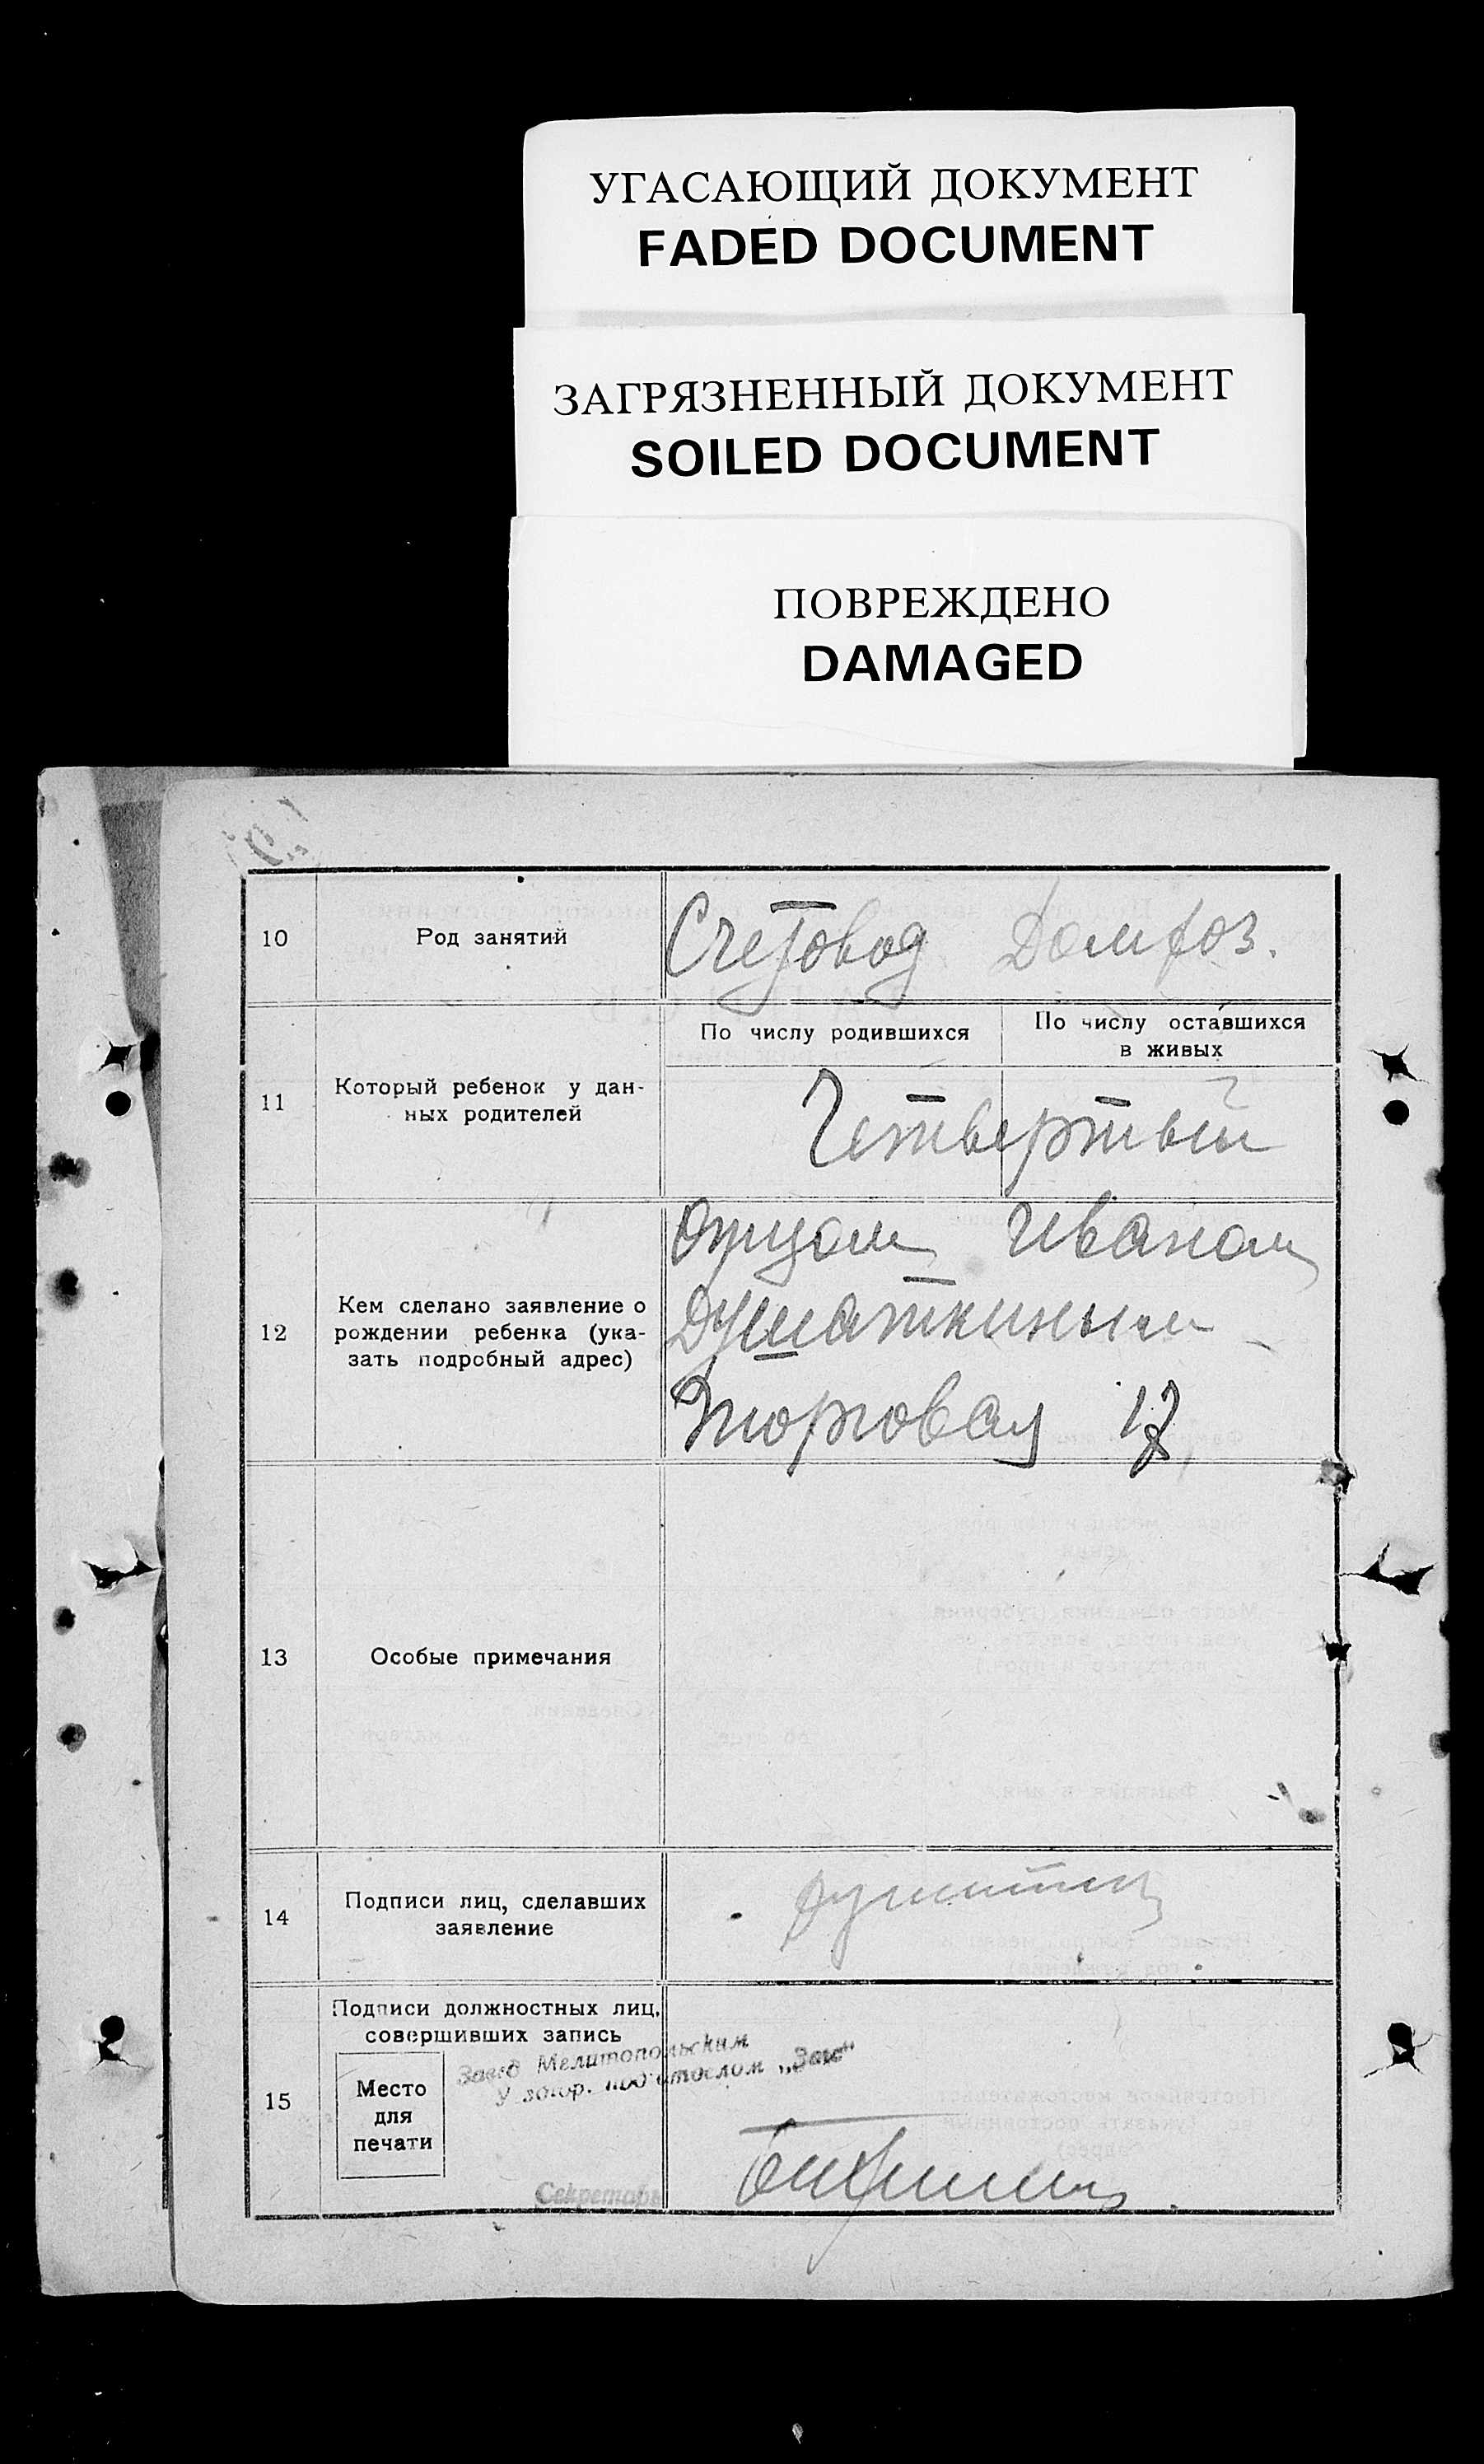 УГАСАЮЩИЙ ДОКУМЕНТ
FADED DOCUMENT
ЗАГРЯЗНЕННЫЙ ДОКУМЕНТ
SOILED DOCUMENT
ПОВРЕЖДЕНО
DAMAGED
10
Род занятий
Счетовод Домхоз.
11
Который ребенок у дан-
ных родителей
По числу родившихся
По числу оставшихся
в живых
Четвертый
12
Кем сделано заявление о
рождении ребенка (ука-
зать подробный адрес)
Отцом Иваном
Душаткиным
Торговая 17
13
Особые примечания
14
Подписи лиц, сделавших
заявление
15
Подписи должностных лиц,
совершивших запись
Место
для
печати
Завед Мелитопольским
"Загс"
Секретарь